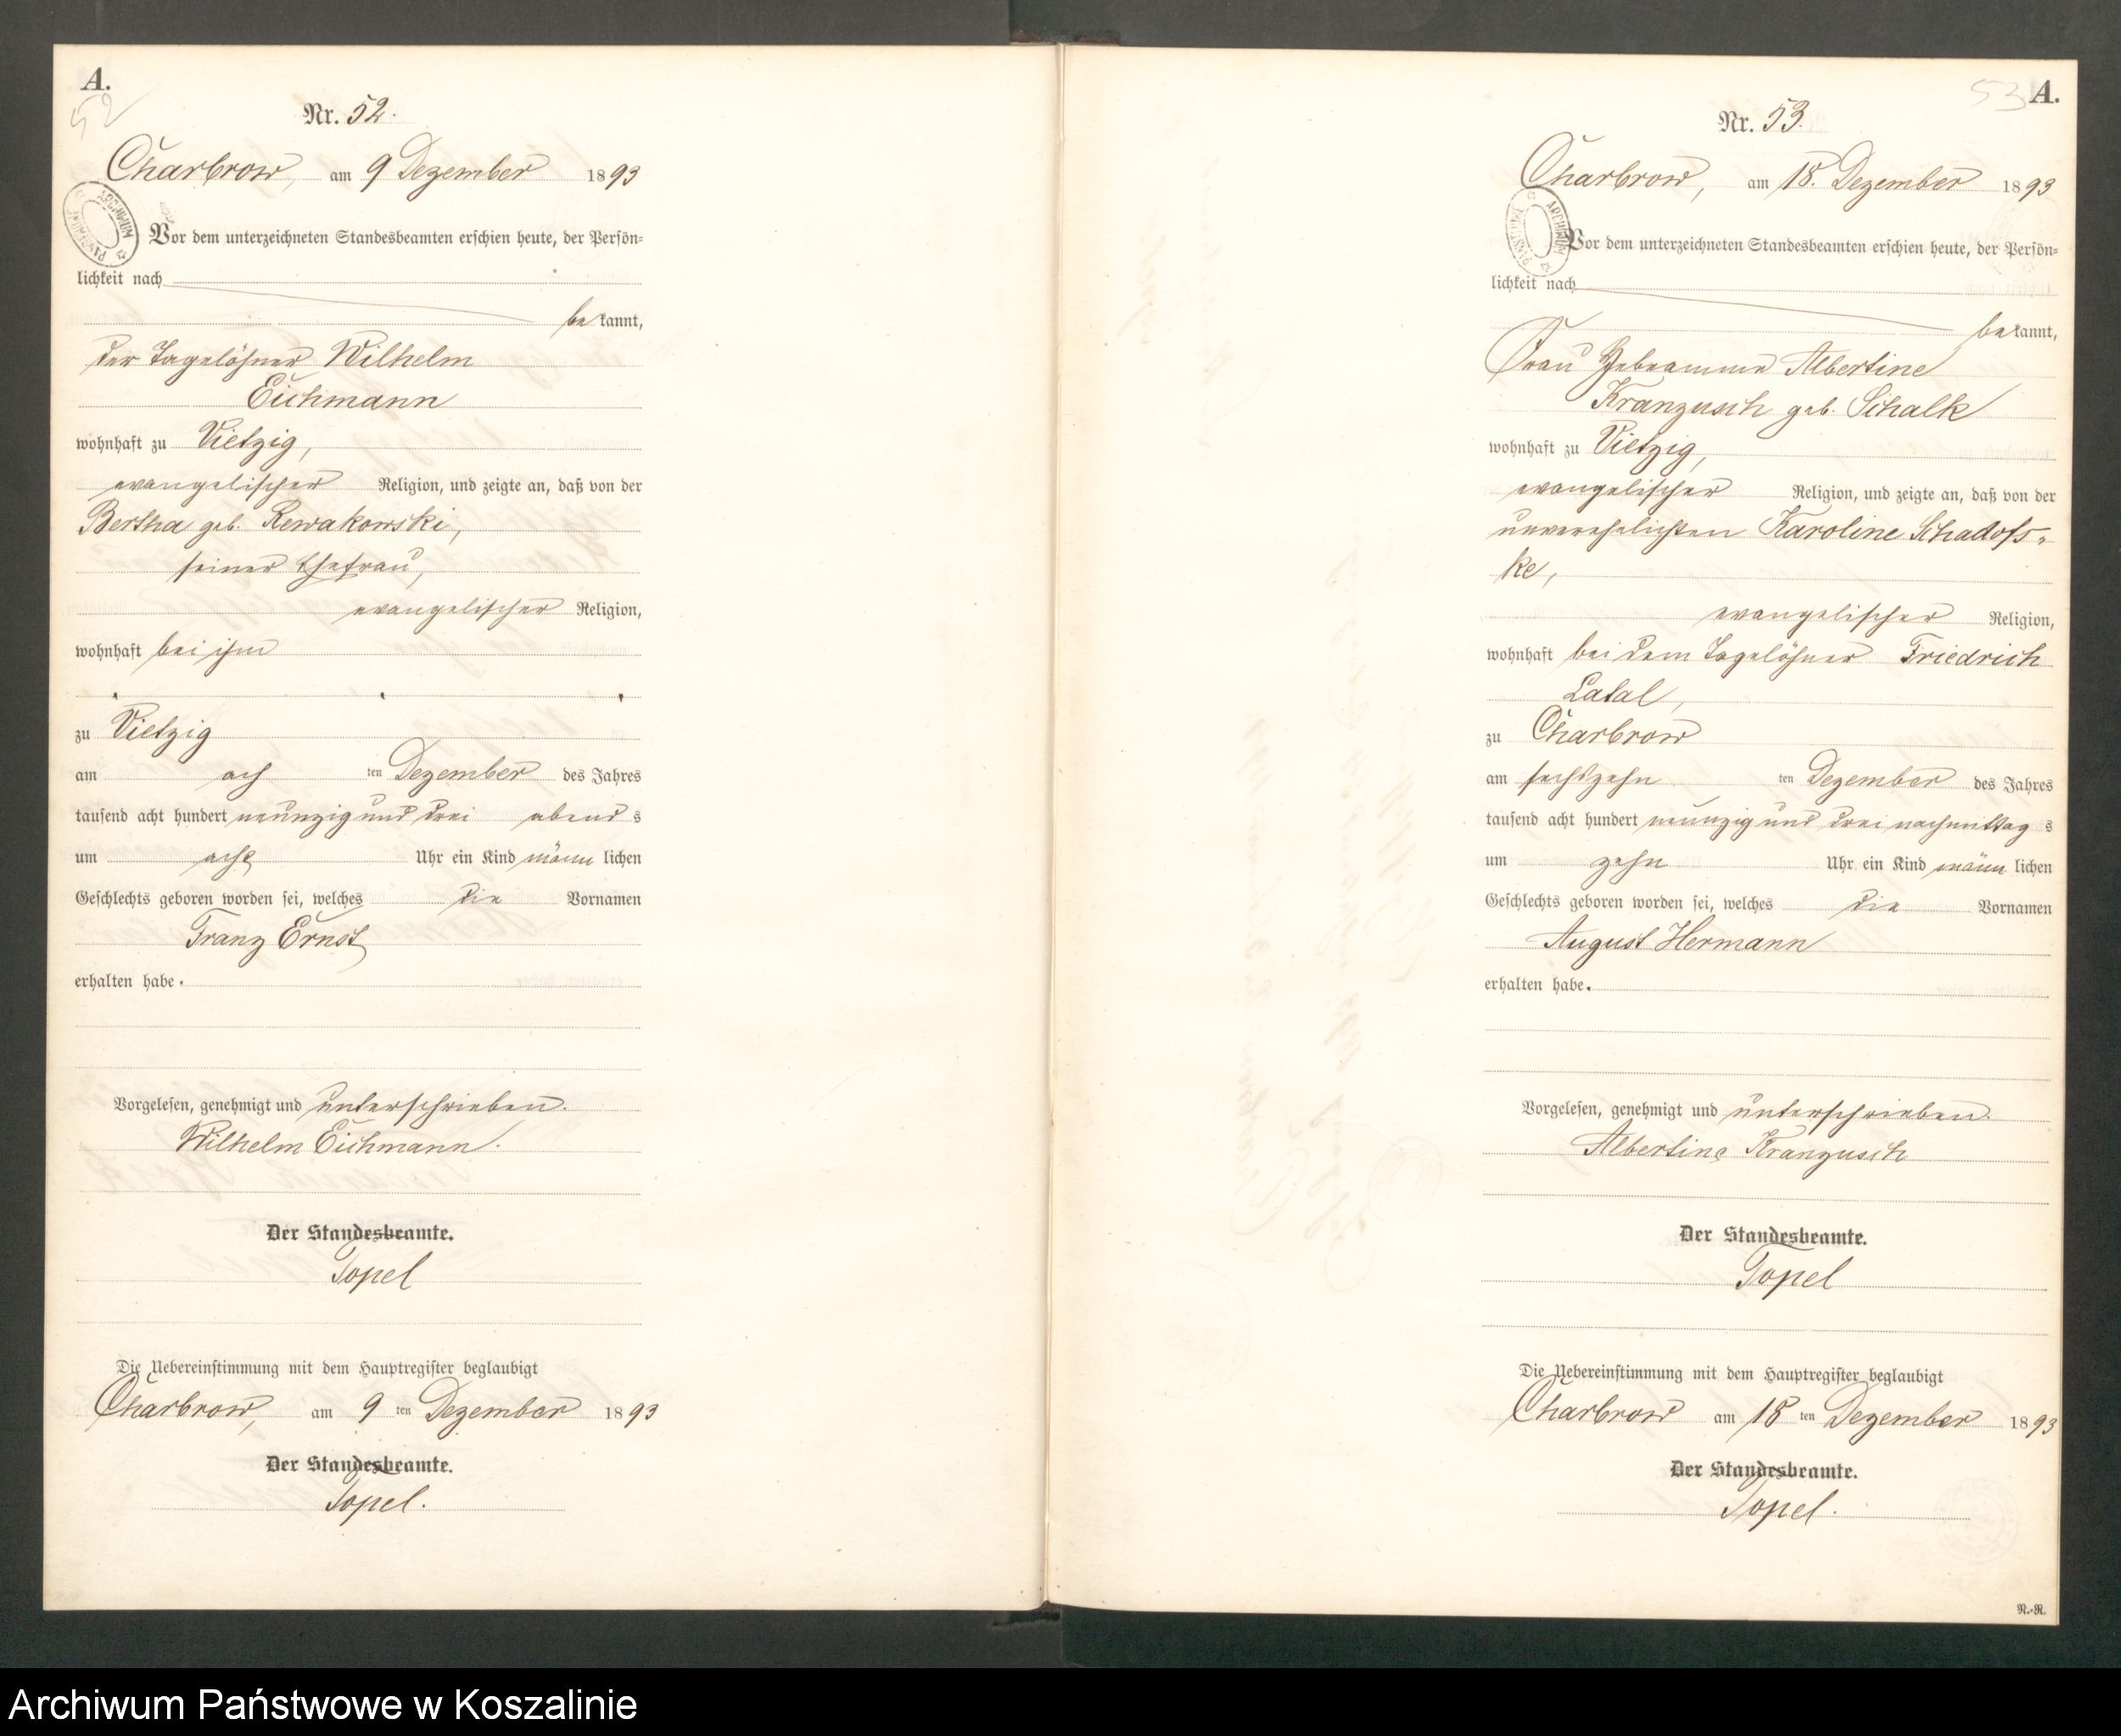 A.
52
Nr. 52.
Charbrow, am 9 Dezember 1893
Vor dem unterzeichneten Standesbeamten erschien heute, der Persön-
lichkeit nach
bekannt,
der Tagelöhner Wilhelm
Eichmann
wohnhaft zu Vietzig,
evangelischer Religion, und zeigte an, daß von der
Bertha geb. Rewakowski,
seiner Ehefrau,
evangelischer Religion,
wohnhaft bei ihm
zu Vietzig
am ach ten Dezember des Jahres
tausend acht hundert neunzig und drei abend s
um acht Uhr ein Kind männ lichen
Geschlechts geboren worden sei, welches die Vornamen
Franz Ernst
erhalten habe.
Vorgelesen, genehmigt und unterschrieben.
Wilhelm Eichmann.
Der Standesbeamte.
Topel
Die Uebereinstimmung mit dem Hauptregister beglaubigt
Charbrow, am 9 ten Dezember 1893
Der Standesbeamte.
Topel.
53 A.
Nr. 53.
Charbrow, am 18. Dezember 1893
Vor dem unterzeichneten Standesbeamten erschien heute, der Persön-
lichkeit nach
bekannt,
Frau Hebeamme Albertine
Kranzusch geb. Schalk
wohnhaft zu Vietzig,
evangelischer Religion, und zeigte an, daß von der
unverehelichten Karoline Schadofs-
ke,
evangelischer Religion,
wohnhaft bei dem Tagelöhner Friedrich
Latal,
zu Charbrow
am sechszehn ten Dezember des Jahres
tausend acht hundert neunzig und drei nachmittag s
um zehn Uhr ein Kind männ lichen
Geschlechts geboren worden sei, welches die Vornamen
August Hermann
erhalten habe.
Vorgelesen, genehmigt und unterschrieben.
Albertine Kranzusch
Der Standesbeamte.
Topel
Die Uebereinstimmung mit dem Hauptregister beglaubigt
Charbrow am 18 ten Dezember 1893
Der Standesbeamte.
Topel.
N.-R.
Archiwum Państwowe w Koszalinie